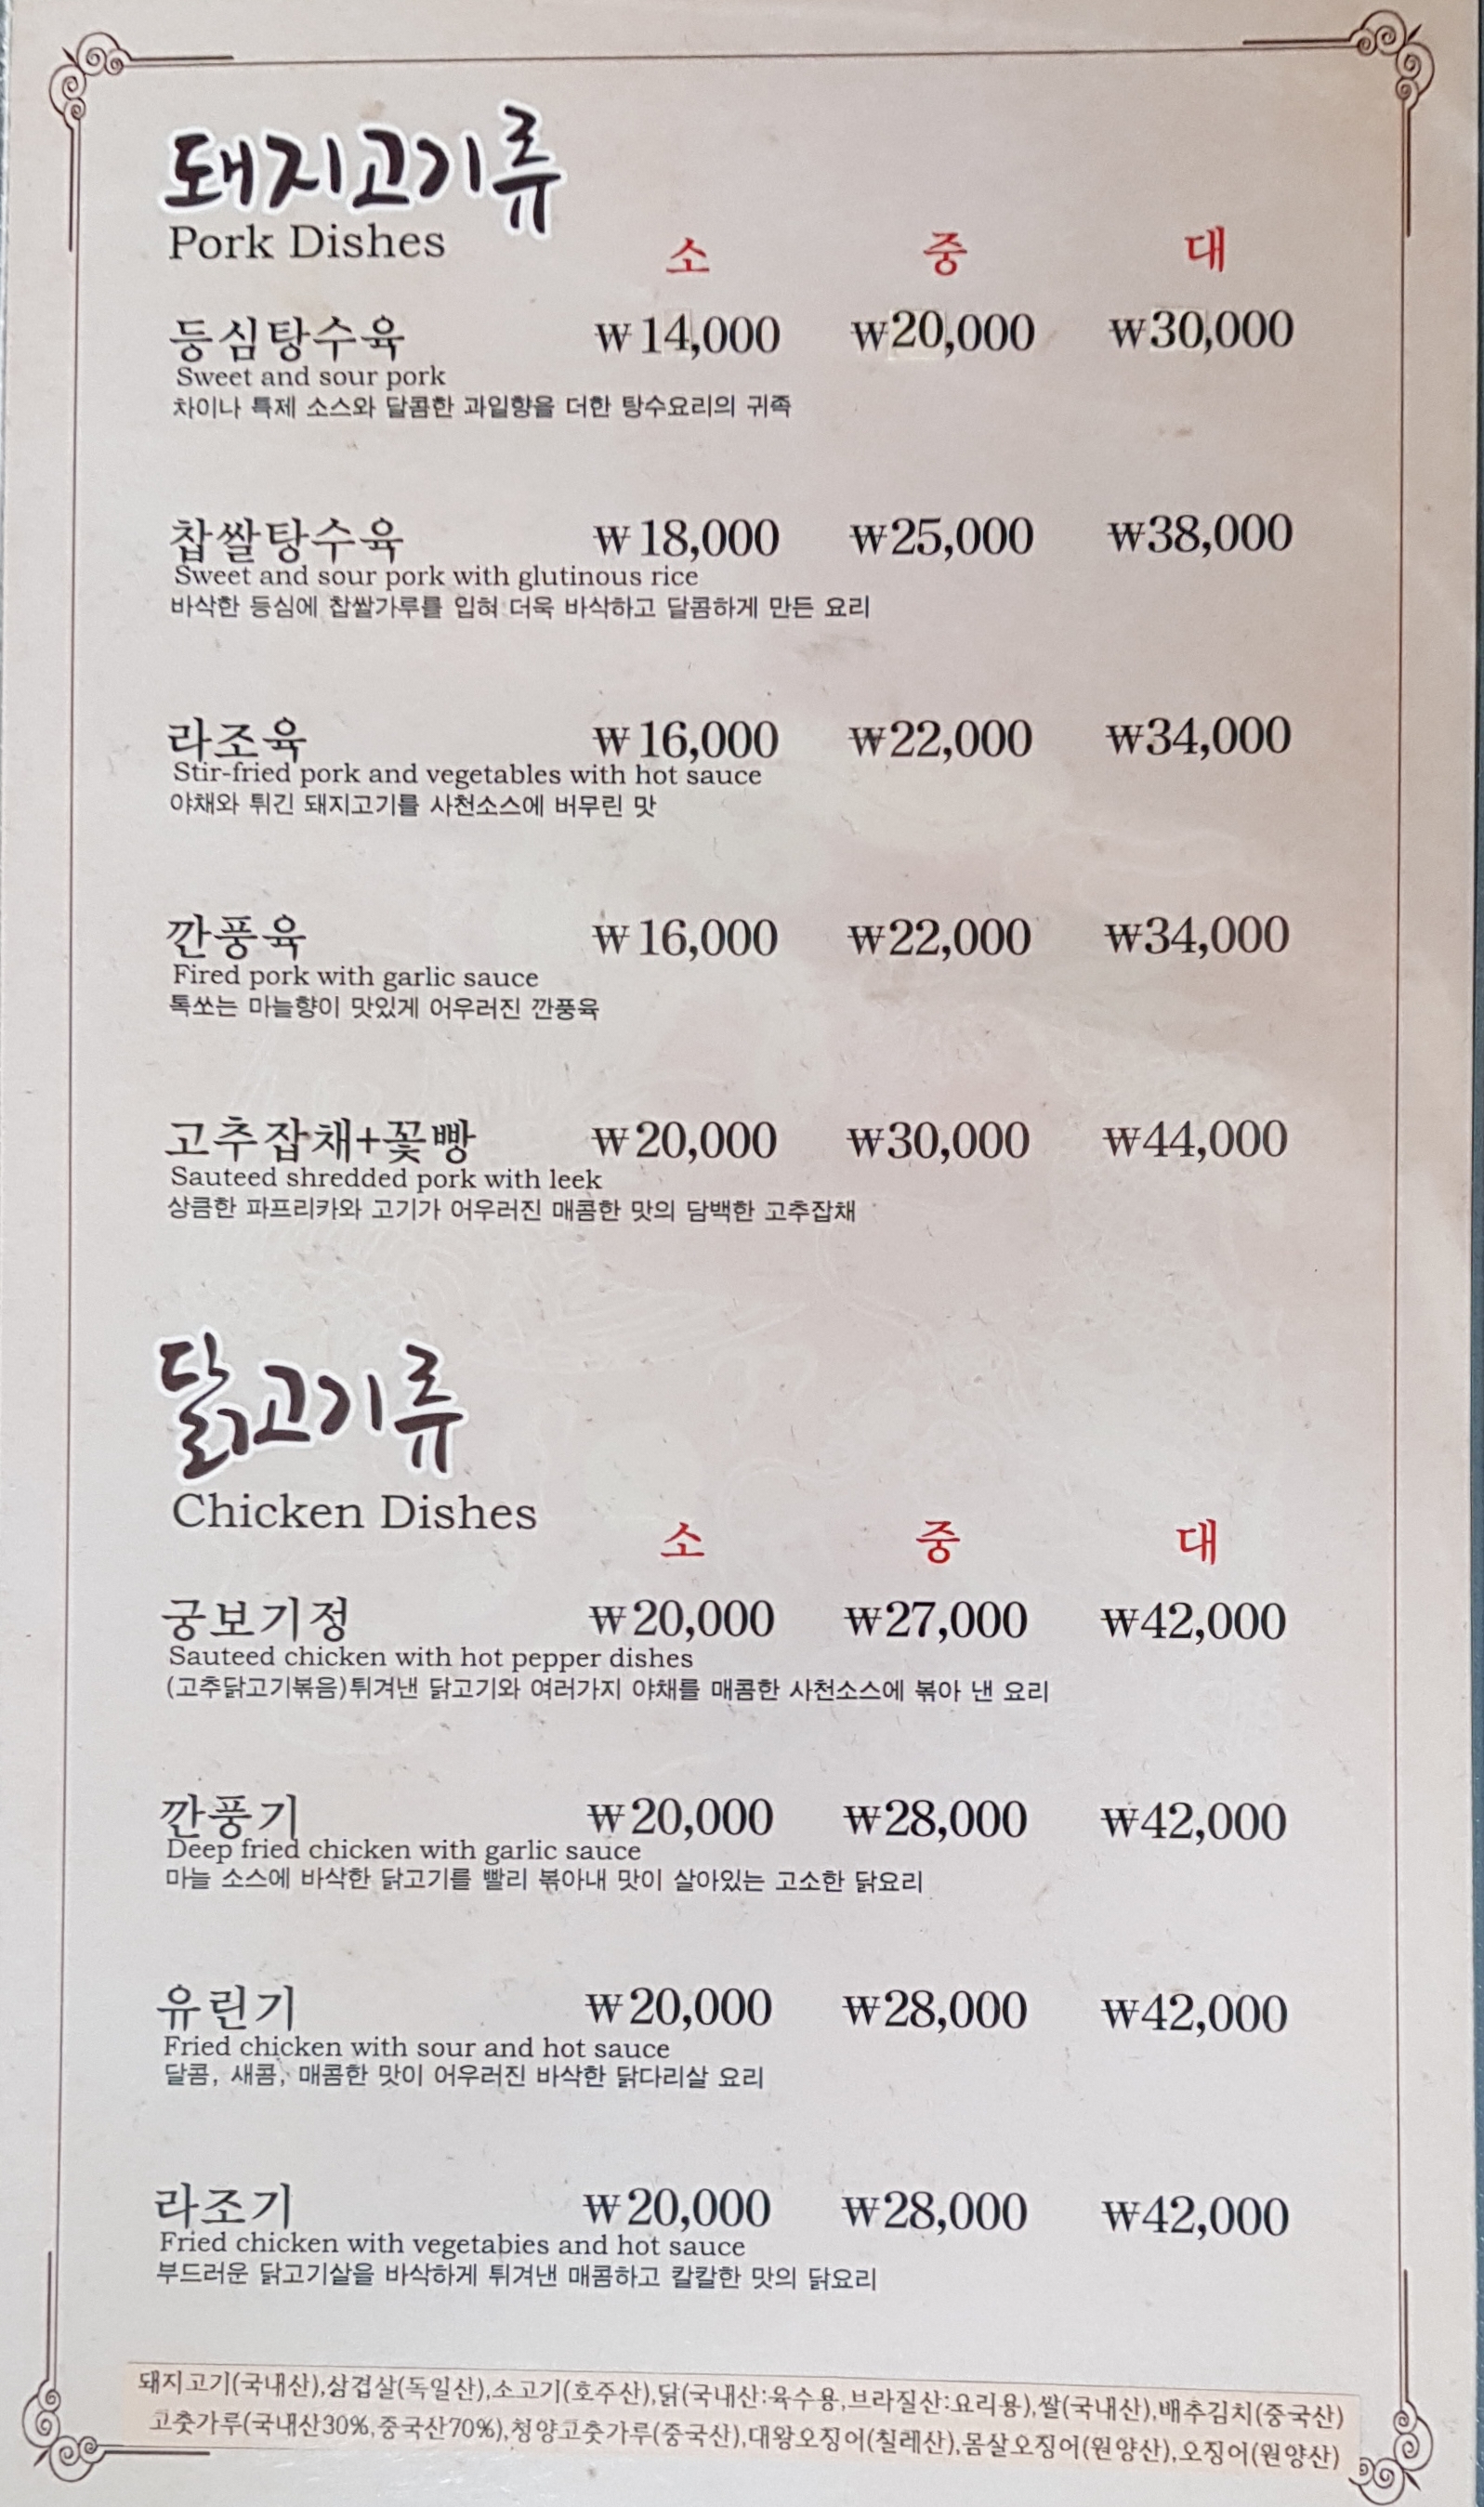 돼지고기류
Pork Dishes
소 중 대
등심탕수육 ₩14,000 ₩20,000 ₩30,000
Sweet and sour pork
차이나 특제 소스와 달콤한 과일향을 더한 탕수요리의 귀족
찹쌀탕수육 ₩18,000 ₩25,000 ₩38,000
Sweet and sour pork with glutinous rice
바삭한 등심에 찹쌀가루를 입혀 더욱 바삭하고 달콤하게 만든 요리
라조육 ₩16,000 ₩22,000 ₩34,000
Stir-fried pork and vegetables with hot sauce
야채와 튀긴 돼지고기를 사천소스에 버무린 맛
깐풍육 ₩16,000 ₩22,000 ₩34,000
Fired pork with garlic sauce
톡쏘는 마늘향이 맛있게 어우러진 깐풍육
고추잡채+꽃빵 ₩20,000 ₩30,000 ₩44,000
Sauteed shredded pork with leek
상큼한 파프리카와 고기가 어우러진 매콤한 맛의 담백한 고추잡채
닭고기류
Chicken Dishes
소 중 대
궁보기정 ₩20,000 ₩27,000 ₩42,000
Sauteed chicken with hot pepper dishes
(고추닭고기볶음)튀겨낸 닭고기와 여러가지 야채를 매콤한 사천소스에 볶아 낸 요리
깐풍기 ₩20,000 ₩28,000 ₩42,000
Deep fried chicken with garlic sauce
마늘 소스에 바삭한 닭고기를 빨리 볶아내 맛이 살아있는 고소한 닭요리
유린기 ₩20,000 ₩28,000 ₩42,000
Fried chicken with sour and hot sauce
달콤, 새콤, 매콤한 맛이 어우러진 바삭한 닭다리살 요리
라조기 ₩20,000 ₩28,000 ₩42,000
Fried chicken with vegetabies and hot sauce
부드러운 닭고기살을 바삭하게 튀겨낸 매콤하고 칼칼한 맛의 닭요리
돼지고기(국내산),삼겹살(독일산),소고기(호주산),닭(국내산:육수용,브라질산:요리용),쌀(국내산),배추김치(중국산)
고춧가루(국내산30%,중국산70%),청양고춧가루(중국산),대왕오징어(칠레산),몸살오징어(원양산),오징어(원양산)